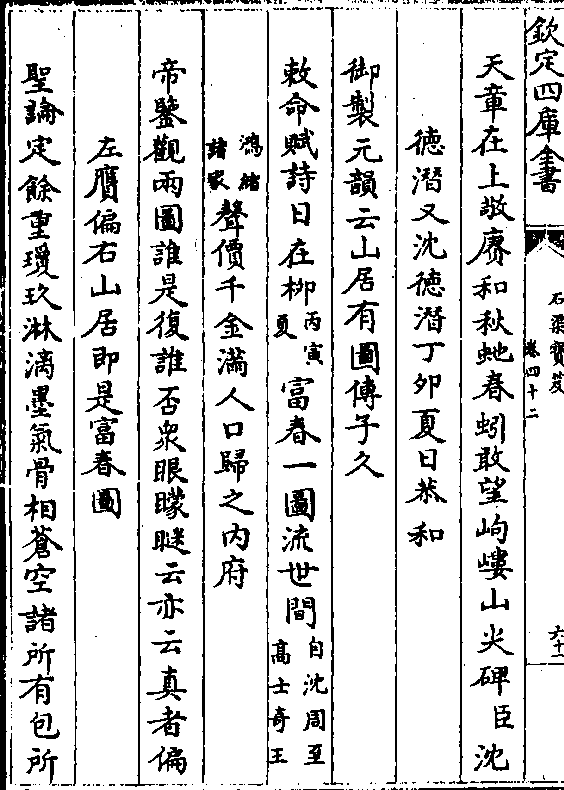 欽定四庫全書
石渠寳笈
卷四十二
六十二
天章在上敬賡和秋虵春蚓敢望岣嶁山尖碑臣沈
德潛又沈德潛丁卯夏日恭和
御製元韻云山居有圖傳子久
敕命賦詩日在柳丙寅夏富春一圖流世間自沈周至髙士奇王
鴻緒諸家聲價千金滿人口歸之内府
帝鑒觀兩圖誰是復誰否衆眼矇瞇云亦云真者偏
左贋偏右山居即是富春圖
聖論定餘重瓊玖淋漓墨氣骨相蒼空諸所有包所